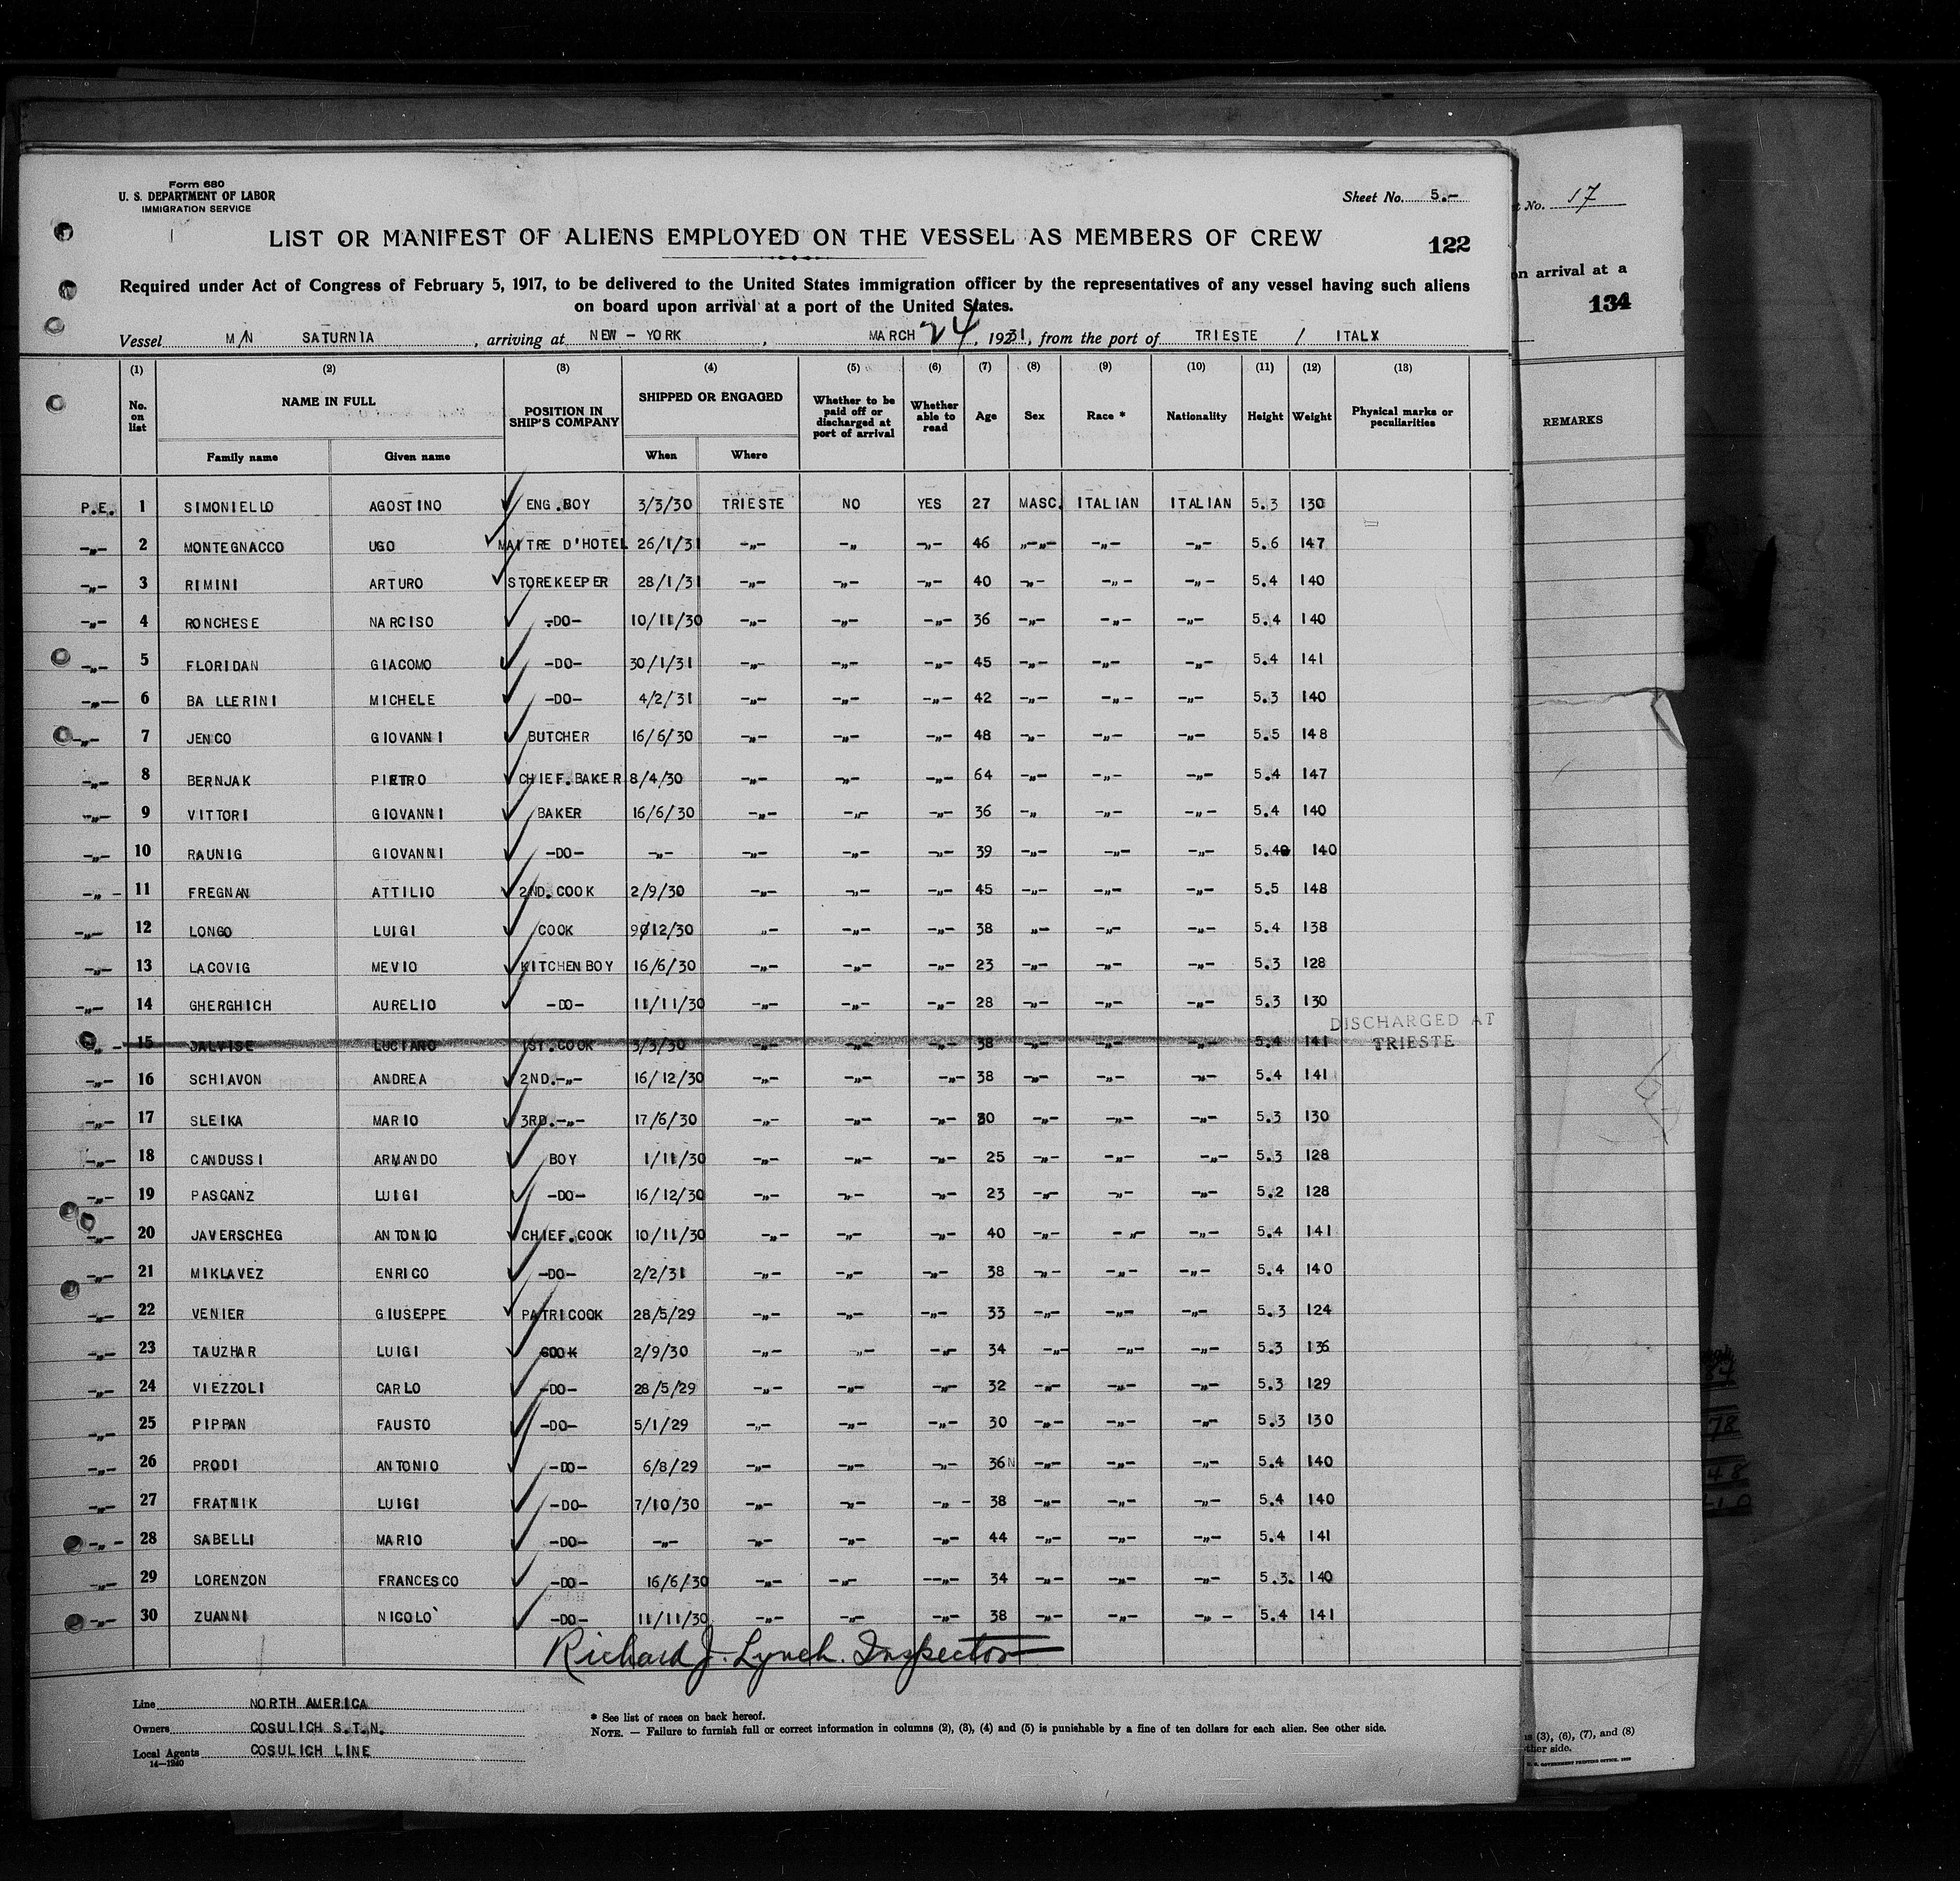 Form 680
U. S. DEPARTMENT OF LABOR
IMMIGRATION SERVICE
Sheet No. 5.-
LIST OR MANIFEST OF ALIENS EMPLOYED ON THE VESSEL AS MEMBERS OF CREW
122
Required under Act of Congress of February 5, 1917, to be delivered to the United States immigration officer by the representatives of any vessel having such aliens
on board upon arrival at a port of the United States.
Vessel M/N SATURNIA, arriving at NEW-YORK, MARCH 24, 1931, from the port of TRIESTE / ITALY
(1) (2) (3) (4) (5) (6) (7) (8) (9) (10) (11) (12) (13)
No. on list NAME IN FULL POSITION IN SHIP'S COMPANY SHIPPED OR ENGAGED Whether to be paid off or discharged at port of arrival Whether able to read Age Sex Race * Nationality Height Weight Physical marks or peculiarities
Family name Given name When Where
P.E. 1 SIMONIELLO AGOSTINO ENG.BOY 3/3/30 TRIESTE NO YES 27 MASC. ITALIAN ITALIAN 5.3 130
-„- 2 MONTEGNACCO UGO MAITRE D'HOTEL 26/1/31 -„- -„ -„- 46 „-„- -„- -„- 5.6 147
-„- 3 RIMINI ARTURO STOREKEEPER 28/1/31 -„- -„- -„- 40 -„- -„- -„- 5.4 140
-„- 4 RONCHESE NARCISO -DO- 10/11/30 -„- -„- -„- 36 -„- -„- -„- 5.4 140
-„- 5 FLORIDAN GIACOMO -DO- 30/1/31 -„- -„- -„- 45 -„- -„- -„- 5.4 141
-„- 6 BALLERINI MICHELE -DO- 4/2/31 -„- -„- -„- 42 -„- -„- -„- 5.3 140
-„- 7 JENCO GIOVANNI BUTCHER 16/6/30 -„- -„- -„- 48 -„- -„- -„- 5.5 148
-„- 8 BERNJAK PIETRO CHIEF.BAKER 8/4/30 -„- -„- -„- 64 -„- -„- -„- 5.4 147
-„- 9 VITTORI GIOVANNI BAKER 16/6/30 -„- -„- -„- 36 -„ -„- -„- 5.4 140
-„- 10 RAUNIG GIOVANNI -DO- -„- -„- -„- -„- 39 -„- -„- -„- 5.4 140
-„- 11 FREGNAN ATTILIO 2ND.COOK 2/9/30 -„- -„- -„- 45 -„- -„- -„- 5.5 148
-„- 12 LONGO LUIGI COOK 9/12/30 „- -„- -„- 38 „- -„- -„- 5.4 138
-„- 13 LACOVIG MEVIO KITCHENBOY 16/6/30 -„- -„- -„- 23 -„- -„- -„- 5.3 128
-„- 14 GHERGHICH AURELIO -DO- 11/11/30 -„- -„- -„- 28 -„- -„- -„- 5.3 130
-„- 15 DALVISE LUCIANO 1ST.COOK 3/3/30 -„- -„- -„- 38 -„- -„- -„- 5.4 141 DISCHARGED AT TRIESTE
-„- 16 SCHIAVON ANDREA 2ND.-„- 16/12/30 -„- -„- -„- 38 -„- -„- -„- 5.4 141
-„- 17 SLEIKA MARIO 3RD.-„- 17/6/30 -„- -„- -„- 30 -„- -„- -„- 5.3 130
-„- 18 CANDUSSI ARMANDO BOY 1/11/30 -„- -„- -„- 25 -„- -„- -„- 5.3 128
-„- 19 PASCANZ LUIGI -DO- 16/12/30 -„- -„- -„- 23 -„- -„- -„- 5.2 128
-„- 20 JAVERSCHEG ANTONIO CHIEF.COOK 10/11/30 -„- -„- -„- 40 -„- -„- -„- 5.4 141
-„- 21 MIKLAVEZ ENRICO -DO- 2/2/31 -„- -„- -„- 38 -„- -„- -„- 5.4 140
-„- 22 VENIER GIUSEPPE PATRICOOK 28/5/29 -„- -„- -„- 33 -„- -„- -„- 5.3 124
-„- 23 TAUZHAR LUIGI COOK 2/9/30 -„- „- -„- 34 -„- -„- -„- 5.3 136
-„- 24 VIEZZOLI CARLO -DO- 28/5/29 -„- -„- -„- 32 -„- -„- -„- 5.3 129
-„- 25 PIPPAN FAUSTO -DO- 5/1/29 -„- -„- -„- 30 -„- -„- -„- 5.3 130
-„- 26 PRODI ANTONIO -DO- 6/8/29 -„- -„- -„- 36N -„- -„- -„- 5.4 140
-„- 27 FRATNIK LUIGI -DO- 7/10/30 -„- -„- -„- 38 -„- -„- -„- 5.4 140
-„- 28 SABELLI MARIO -DO- -„- -„- -„- -„- 44 -„- -„- -„- 5.4 141
-„- 29 LORENZON FRANCESCO -DO- 16/6/30 -„- -„- -„- 34 -„- -„- -„- 5.3. 140
-„- 30 ZUANNI NICOLO` -DO- 11/11/30 -„- -„- -„- 38 -„- -„- -„- 5.4 141
Richard J. Lynch. Inspector
Line NORTH AMERICA
Owners COSULICH S.T.N.
Local Agents COSULICH LINE
14—1240
* See list of races on back hereof.
NOTE. — Failure to furnish full or correct information in columns (2), (3), (4) and (5) is punishable by a fine of ten dollars for each alien. See other side.
No. 17
on arrival at a
134
REMARKS
(3), (6), (7), and (8)
other side.
U. S. GOVERNMENT PRINTING OFFICE
78
48